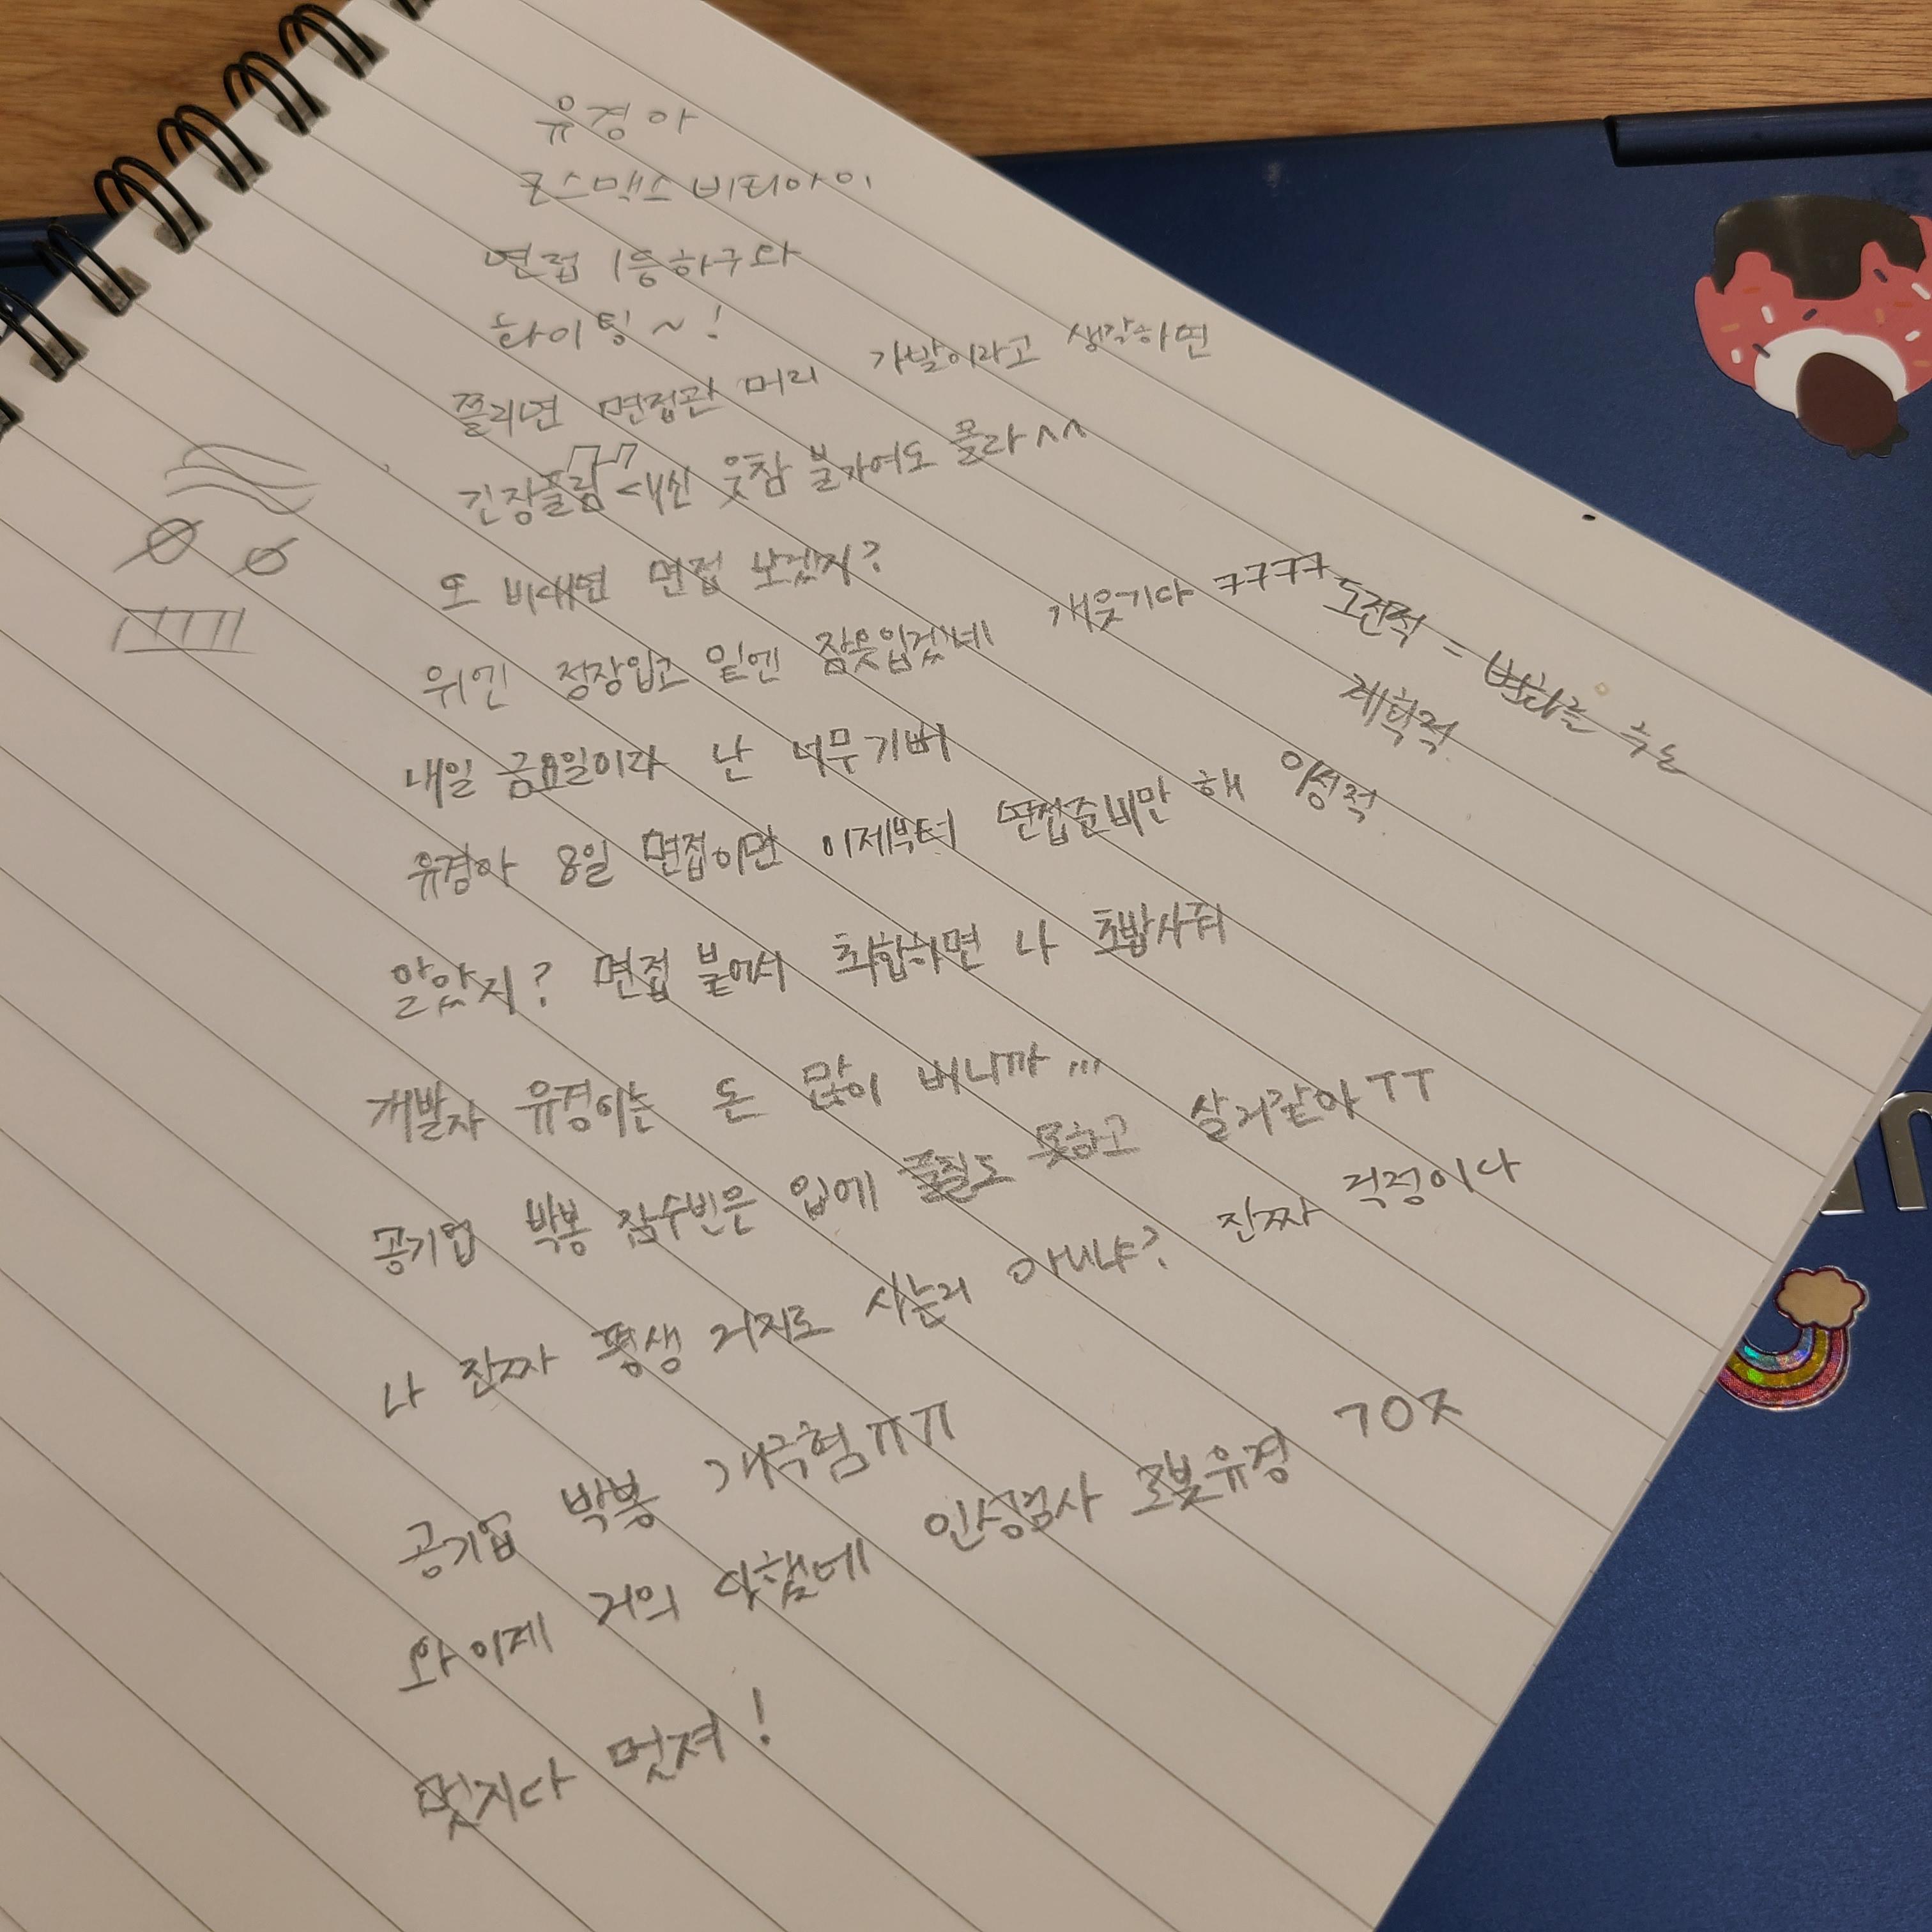 유경아
코스맥스 비티아이
면접 1등하구와
화이팅~!
쫄리면 면접관 머리 가발이라고 생각하면
긴장풀림 대신 웃참 불가여도 몰라^^
또 비대면 면접 보겠지?
위엔 정장입고 밑엔 잠옷입겠네 개웃기다 ㅋㅋㅋㅋ
도전적 = 변화를 추는
계획적
이성적
내일 금요일이라 난 너무기뻐
유경아 8일 면접이면 이제부터 면접준비만 해
알았지? 면접 붙어서 취합하면 나 초밥사줘
개발자 유경이는 돈 많이 버니까...
공기업 박봉 잠수빈은 입에 풀칠도 못하고 살거같아ㅜㅜ
나 진짜 평생 거지로 사는거 아니냐? 진짜 걱정이다
공기업 박봉 개극혐ㅠㅠ
와 이제 거의 다했네 인성검사 로봇유경 ㄱㅇㅈ
멋지다 멋져!